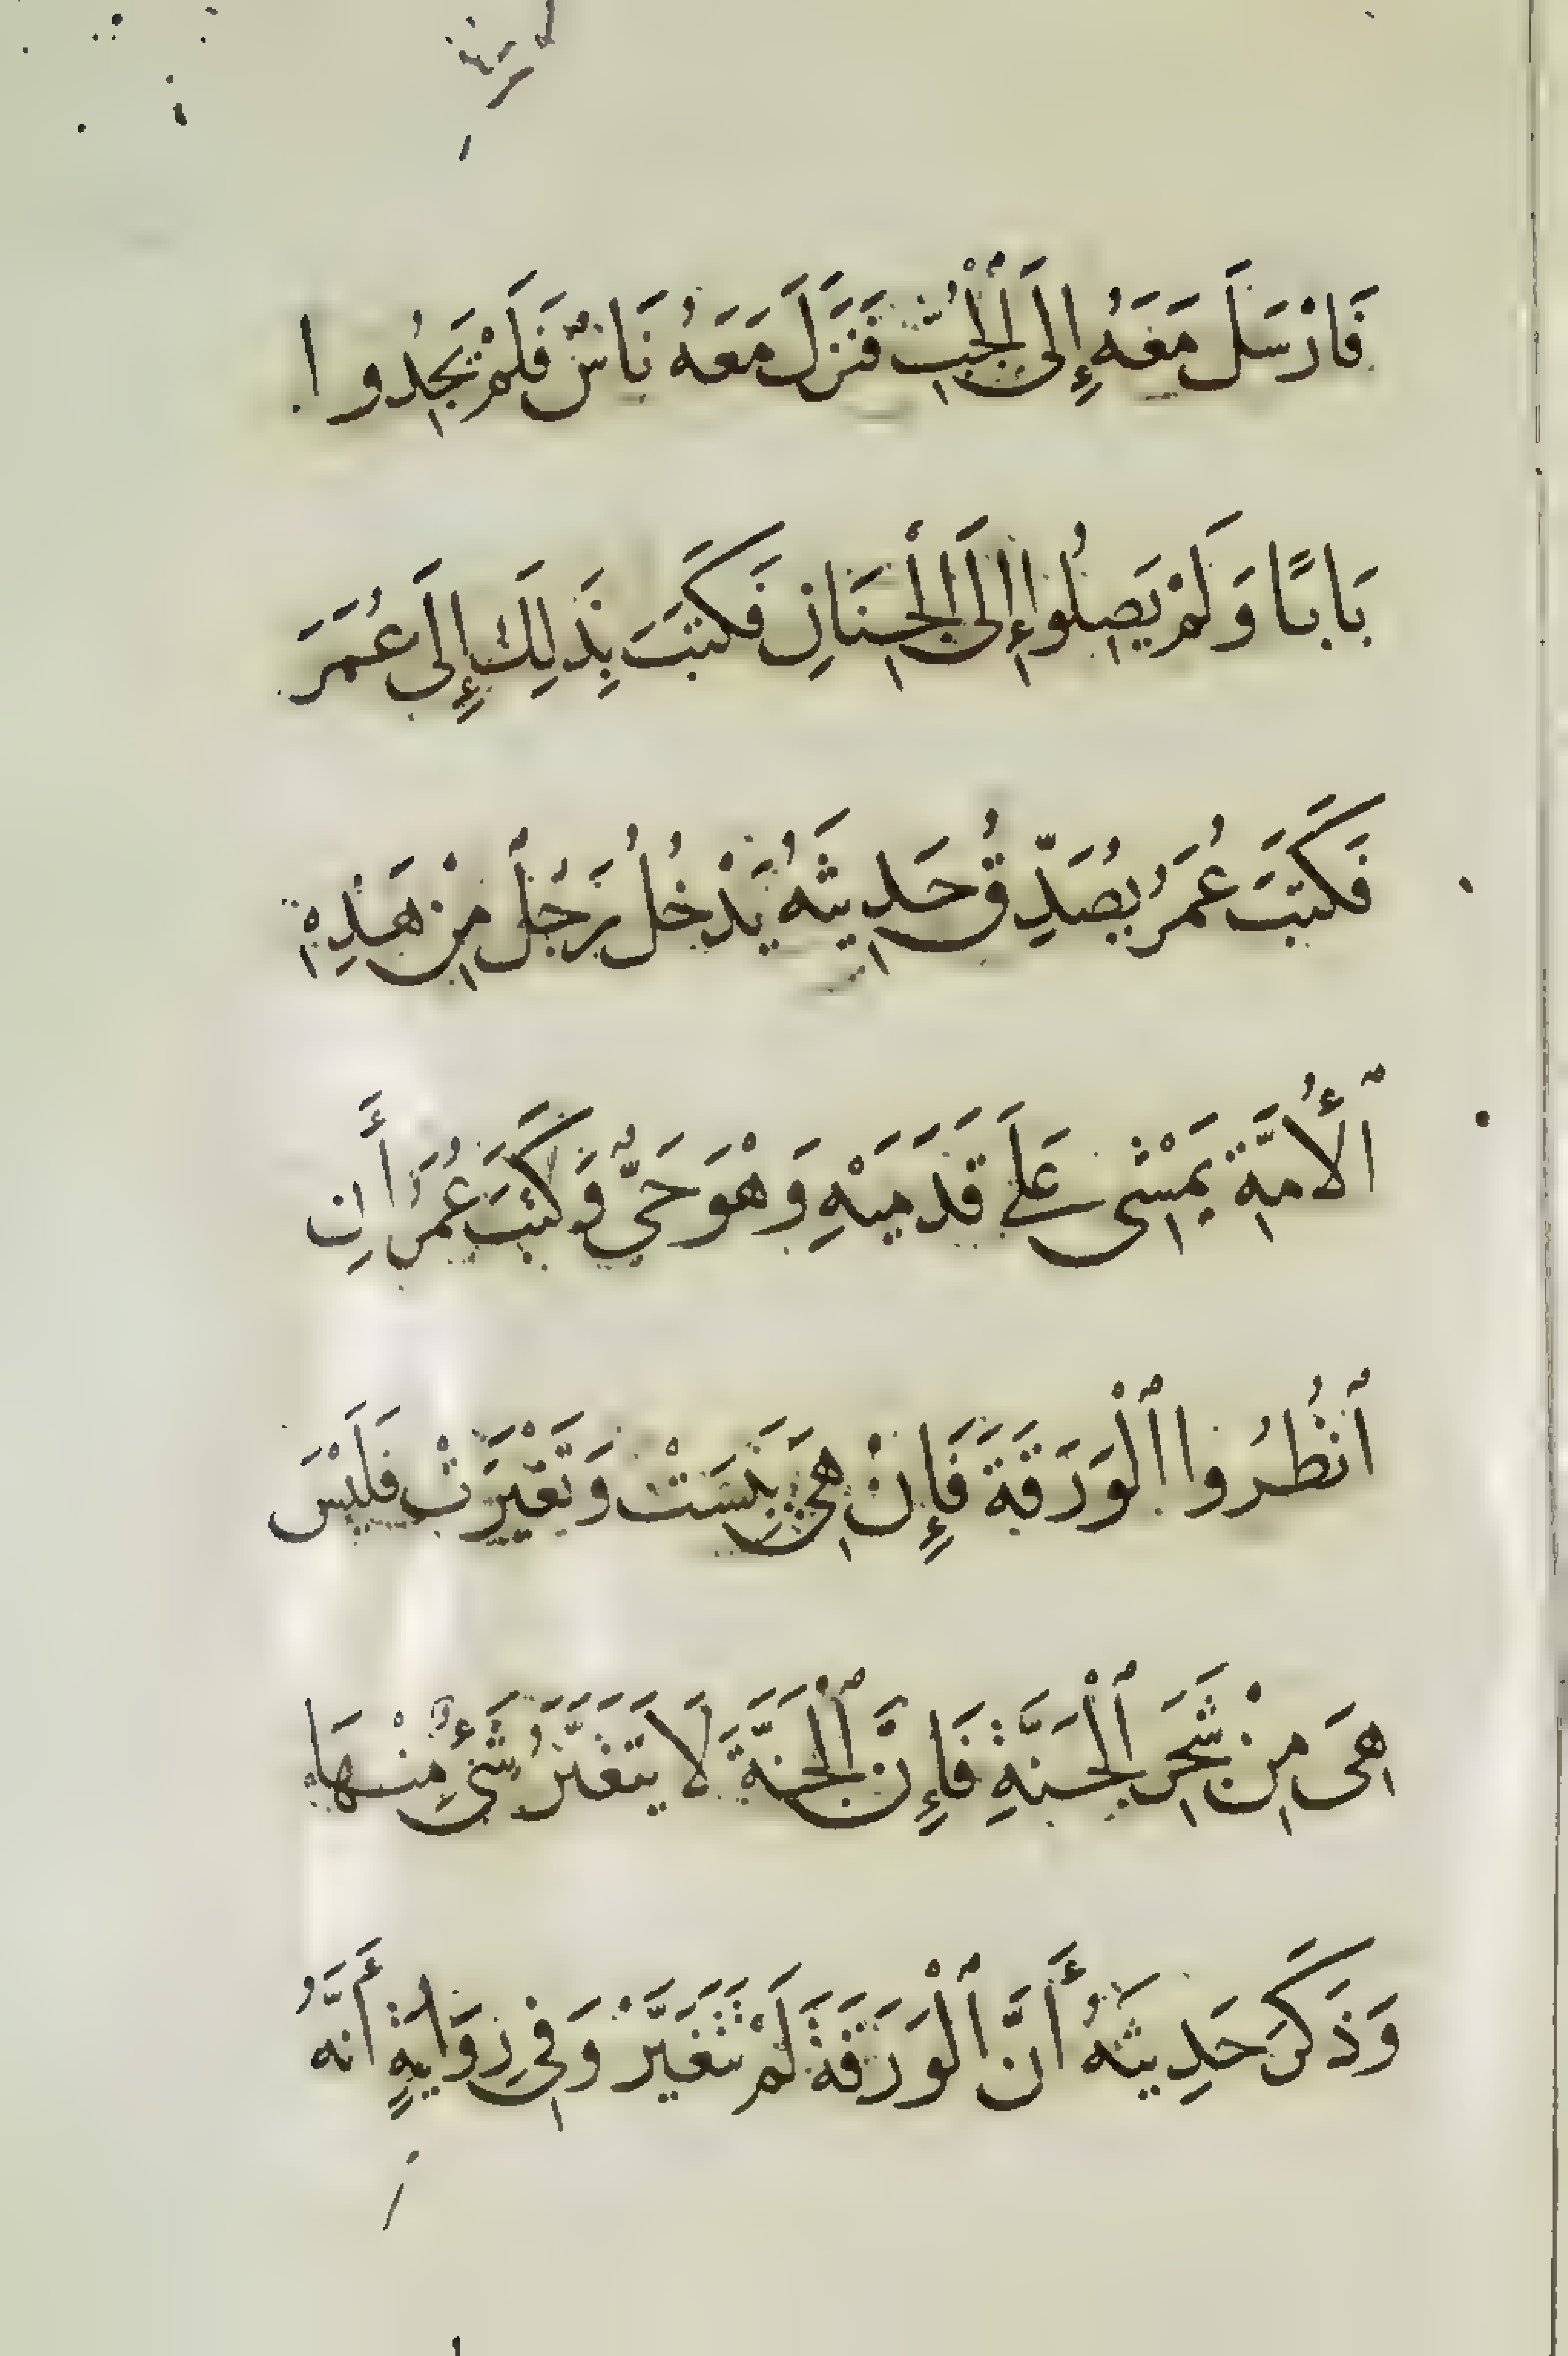 فَأرْسَلَ مَعَهُ إِلَى ٱلْجُبِّ فَنَزَلَ مَعَهُ نَاسٌ فَلَمْ يَجِدُوا
بَابًا وَلَمْ يَصِلُوا إِلَى ٱلْجِنَانِ فَكَتَبَ بِذَلِكَ إِلَى عُمَرَ
فَكَتَبَ عُمَرُ يُصَدِّقُ حَدِيثَهُ يَدْخُلُ رَجُلٌ مِنْ هَذِهِ
ٱلْأُمَّةِ يَمْشِى عَلَى قَدَمَيْهِ وَهْوَ حَىٌّ وَكَتَبَ عُمَرُ أَنِ
ٱنْظُرُوا ٱلْوَرَقَةَ فَإِنْ هِىَ يَبِسَتْ وَتَغَيَّرَتْ فَلَيْسَ
هِىَ مِنْ شَجَرِ ٱلْجَنَّةِ فَإِنَّ ٱلْجَنَّةَ لَا يَتَغَيَّرُ شَىْءٌ مِنْهَا
وَذَكَرَ حَدِيثَهُ أَنَّ ٱلْوَرَقَةَ لَمْ تَتَغَيَّرْ وَفِى رِوَايَةٍ أَنَّهُ